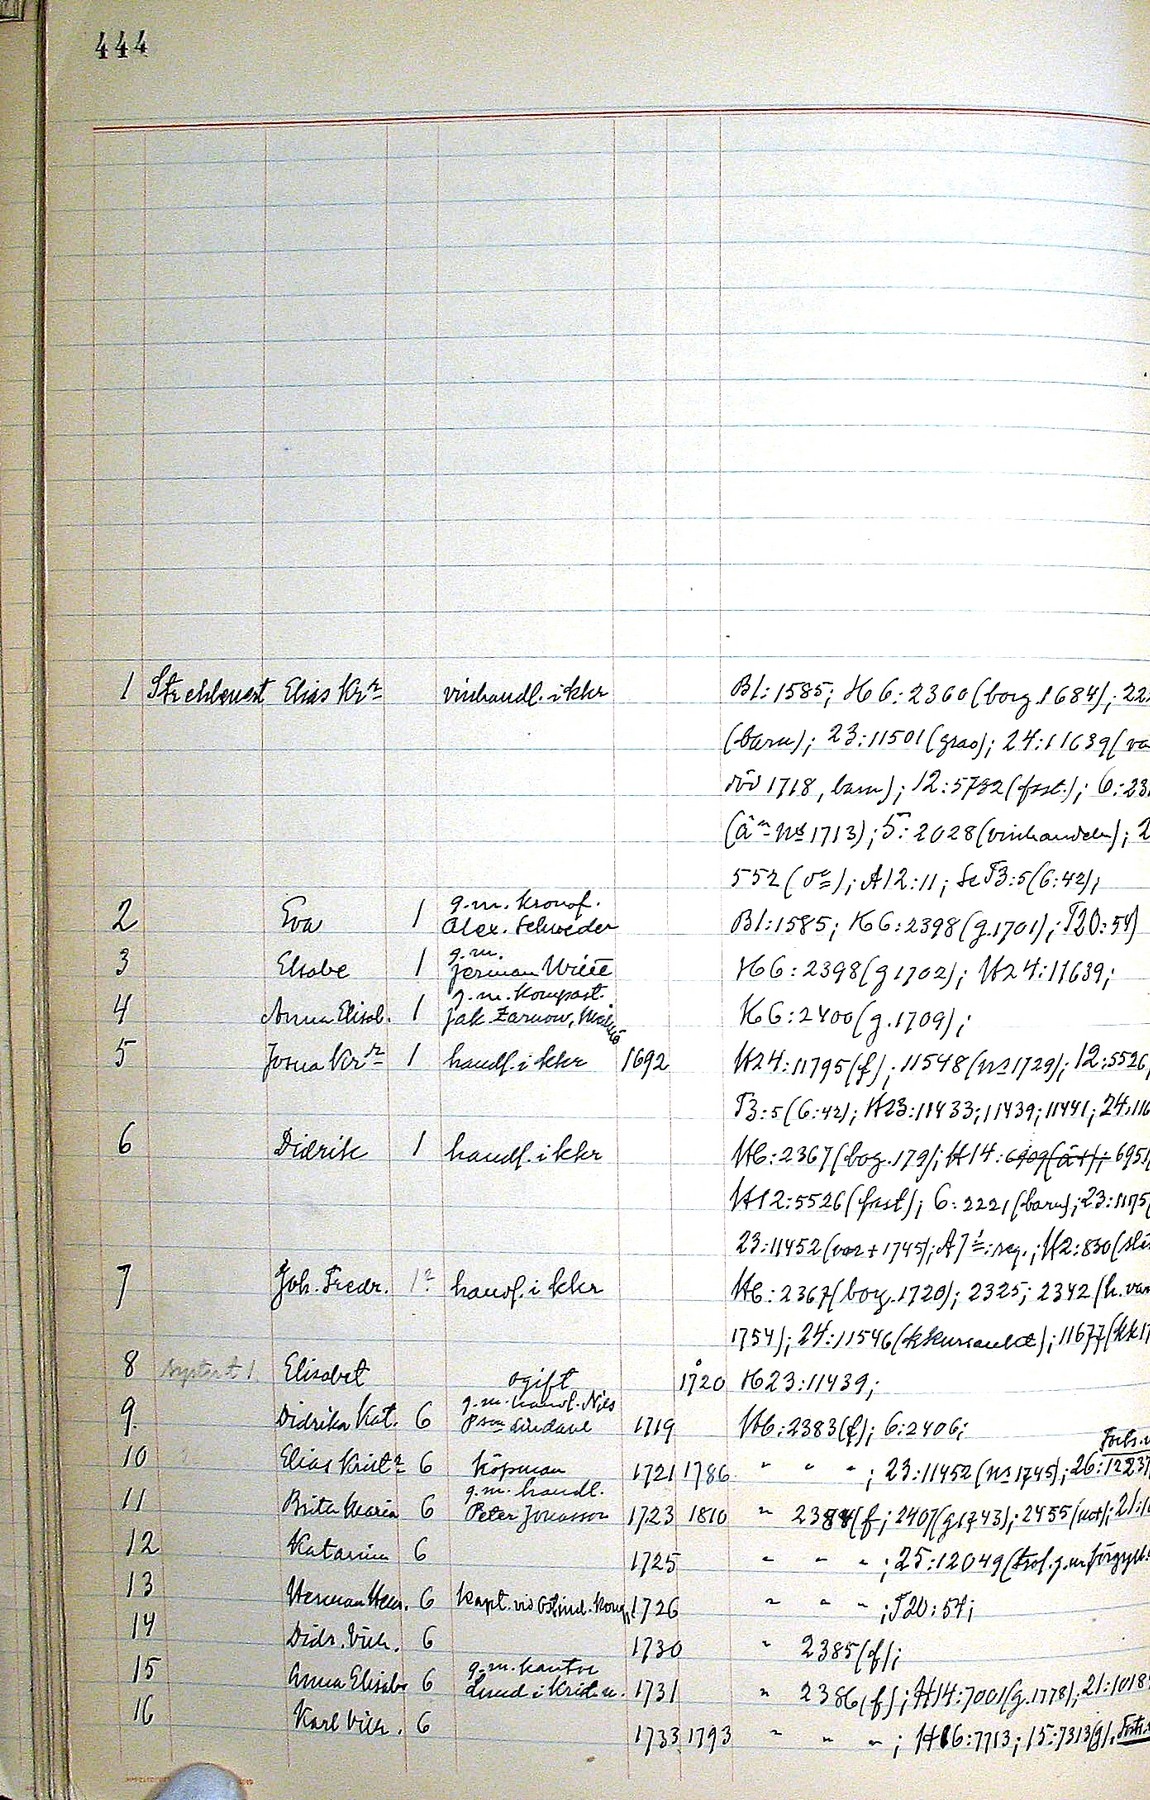 444
1 Strehlenert Elias Kr:r vinhandl. i kkr Bl:1585; H6:2360 (borg. 1684); 22
(barn); 23:11501 (grav); 24:11639 (va
död 1718, barn); 12:5732 (fast.); 6:23
(å:n ns 1713); 5:2028 (vinhandeln); 2
552 (v:e); A12:11; Se T3:5 (6:42);
2 Eva 1 g.m. kronof. Alex. Schweder Bl:1585; H6:2398 (g.1701); T20:54)
3 Elsabe 1 g.m. Jerman H6:2398 (g 1702); H24:11639;
4 Anna Elisab. 1 g.m. Jak. Zarnow, H6:2400 (g.1709);
5 Josua Kr:r 1 handl. i kkr 1692 H24:11795 (f); 11548 (ns 1729); 12:5526,
T3:5 (6:42); H23:11433; 11439; 11441; 24:116
6 Didrik 1 handl. i kkr H6:2367 (borg. 179); H14: 6951
H12:5526 (fast); 6:2221 (barn); 23:1175
23:11452 (var + 1745); H2:830
7 Joh. Fredr. 1? handl. i kkr H6:2367 (borg. 1720); 2325; 2342 (h. var
1754); 24:11546; 11677 (kk 17
8 syster t 1. Elisabet ogift 1720 H23:11439;
9. Didrika Kat. 6 g.m. handl. Nils 1719 H6:2383 (f); 6:2406;
Forts.
10 Elias Krist:r 6 köpman 1721 1786 " " "; 23:11452 (ns 1745); 26:12237
11 Brita Maria 6 g.m. handl. Peter Jonasson 1723 1810 " 2384 (f; 2407 (g 1743); 2455
12 Katarina 6 1725 " " "; 25:12049
13 Herman Henr. 6 Kapt. vid Ostind. Komp. 1726 " " "; T20:54;
14 Didr. Vilh. 6 1730 " 2385 (f);
15 Anna Elisab. 6 g.m. kantor Lund i Krist:n. 1731 " 2386 (f); H14:7001 (g.1778); 21:1018
16 Karl Vilh. 6 1733 1793 " " "; H16:7713; 15:7313 (g). Forts.